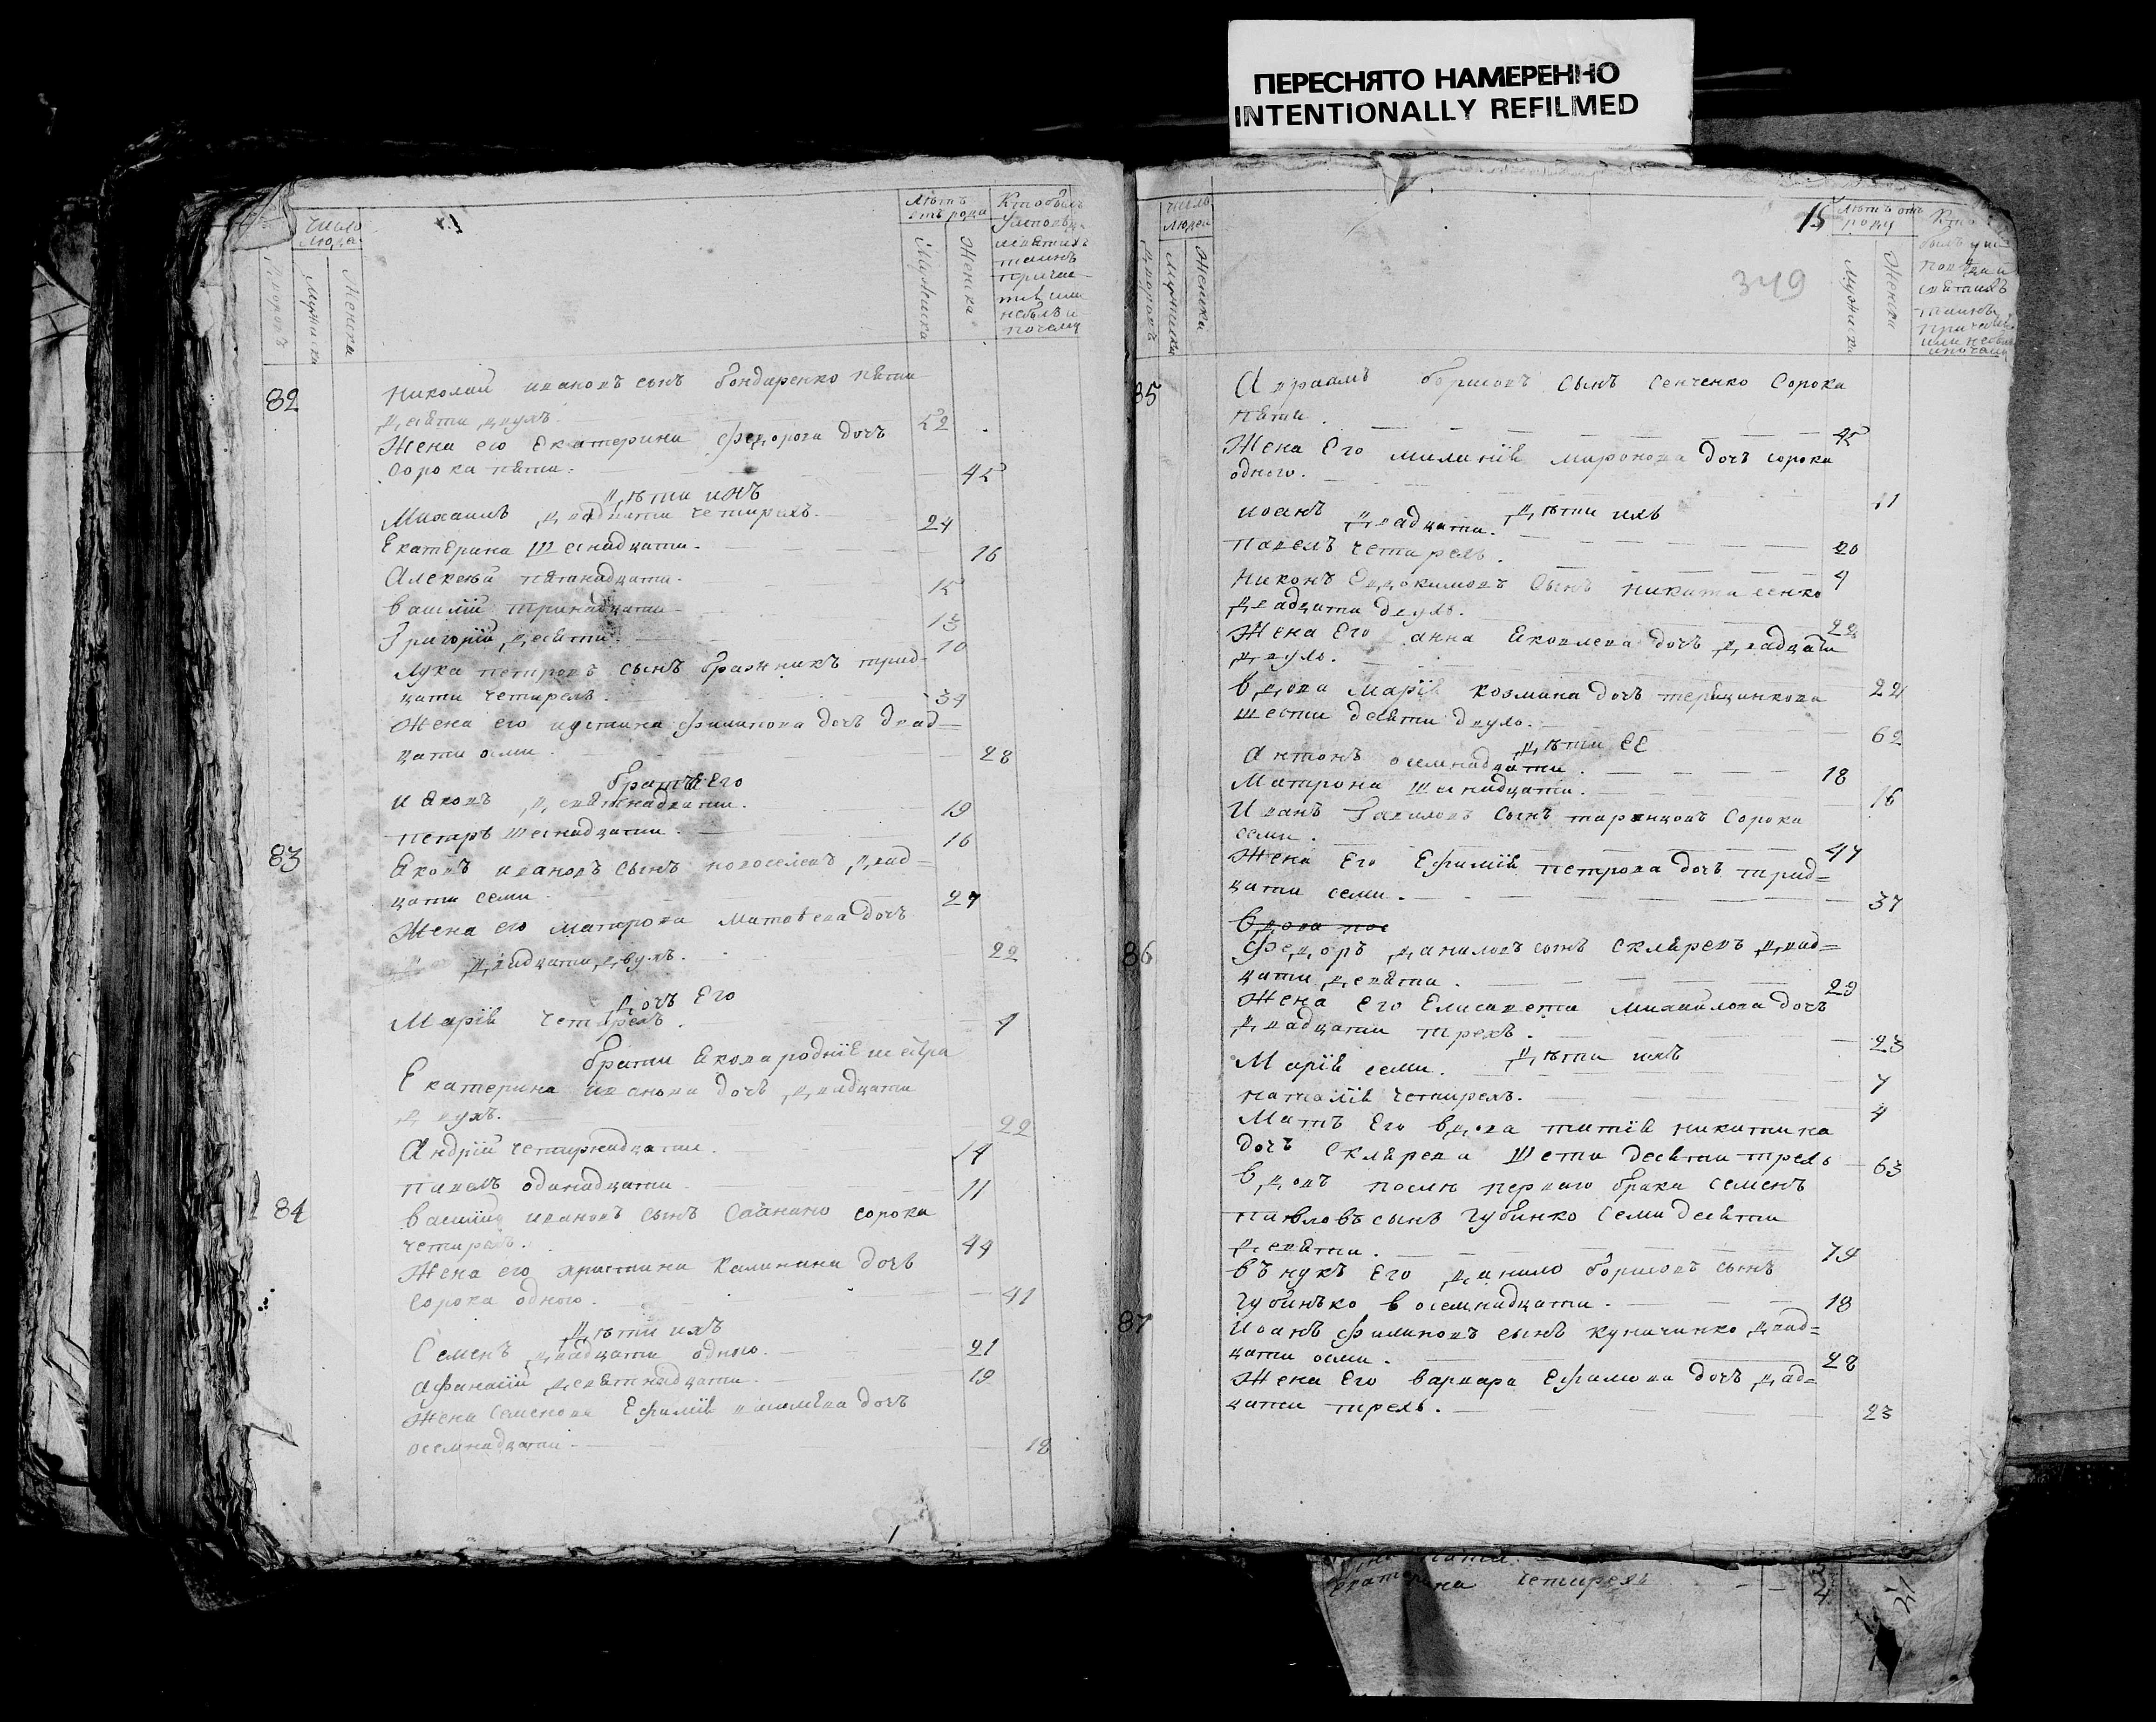 ПЕРЕСНЯТО НАМЕРЕННО
INTENTIONALLY REFILMED
Число
людей
Мужеска
Женска
Лѣтъ
отъ роду
Мужеска
Женска
Кто былъ
у исповѣди
и святыхъ
таинъ
82
Николай ивановъ сынъ бондаренко пяти
десяти двухъ 52
Жена его Екатерина федорова дочь
сорока пяти. 45
Дѣти ихъ
Михаилъ двадцати четирехъ. 24
Екатерина шеснадцати. 16
Алексѣй пятнадцати. 15
василій тринадцати 13
Григорій десяти. 10
Лука петровъ сынъ бражникъ трид-
цати четирехъ. 34
Жена его иустина филипова дочь двад=
цати осми. 28
братья Его
ияковъ девятнадцати. 19
петръ шеснадцати. 16
83
Яковъ ивановъ сынъ новоселовъ двад=
цати семи. 27
Жена его матрона матвѣева дочь
двадцати двухъ. 22
дочь Его
Марія четирехъ. 4
брати Якова родніе и сестра
Екатерина иванова дочь двадцати
двухъ. 22
Андрій четирнадцати. 14
павелъ одинадцати 11
84
василій ивановъ сынъ сорока
четирехъ. 44
Жена его христина Калинина дочь
сорока одного. 41
Дѣти ихъ
Семенъ двадцати одного. 21
афанасій девятнадцати. 19
Жена Семенова Ефимія дочь
осемнадцати. 18
15
349
Число
людей
дворовъ
Мужеска
Женска
Лѣтъ отъ
роду
Мужеска
Женска
Кто
былъ у ис
повѣди и
святихъ
таинъ
85
Авраамъ борисовъ сынъ сенченко сорока
пяти. 45
Жена Его миланія миронова дочь сорока
одного. 41
Дѣти ихъ
иоанъ двадцати. 20
павелъ четирехъ. 4
Никонъ Евдокимовъ сынъ никитаенко
двадцати двухъ. 22
Жена Его анна Яковлева дочь двадцати
двухъ. 22
вдова Марія козмина дочь
шести десяти двухъ. 62
Дѣти ЕЕ
Антонъ осемнадцати. 18
Матрона шеснадцати. 16
Иванъ Гавиловъ сынъ сорока
семи. 47
Жена Его Ефимія петрова дочь трид=
цати семи. 37
вдова пос
86
Федоръ даниловъ сынъ скляревъ двад=
цати девяти. 29
Жена его Елисавета михайлова дочь
двадцати трехъ. 23
Дѣти ихъ
Марія семи. 7
наталія четирехъ. 4
Мать Его вдова татія никитина
дочь Склярева шести десяти трехъ 63
вдовъ послѣ перваго брака семенъ
павловъ сынъ губинко семи десяти
девяти. 79
внукъ Его данило борисовъ сынъ
губинько в осемнадцати. 18
87
Иоанъ филиповъ сынъ куничинко двад=
цати осми. 28
Жена Его варвара Ефимова дочь двад=
цати трехъ. 23
Екатерина четирехъ